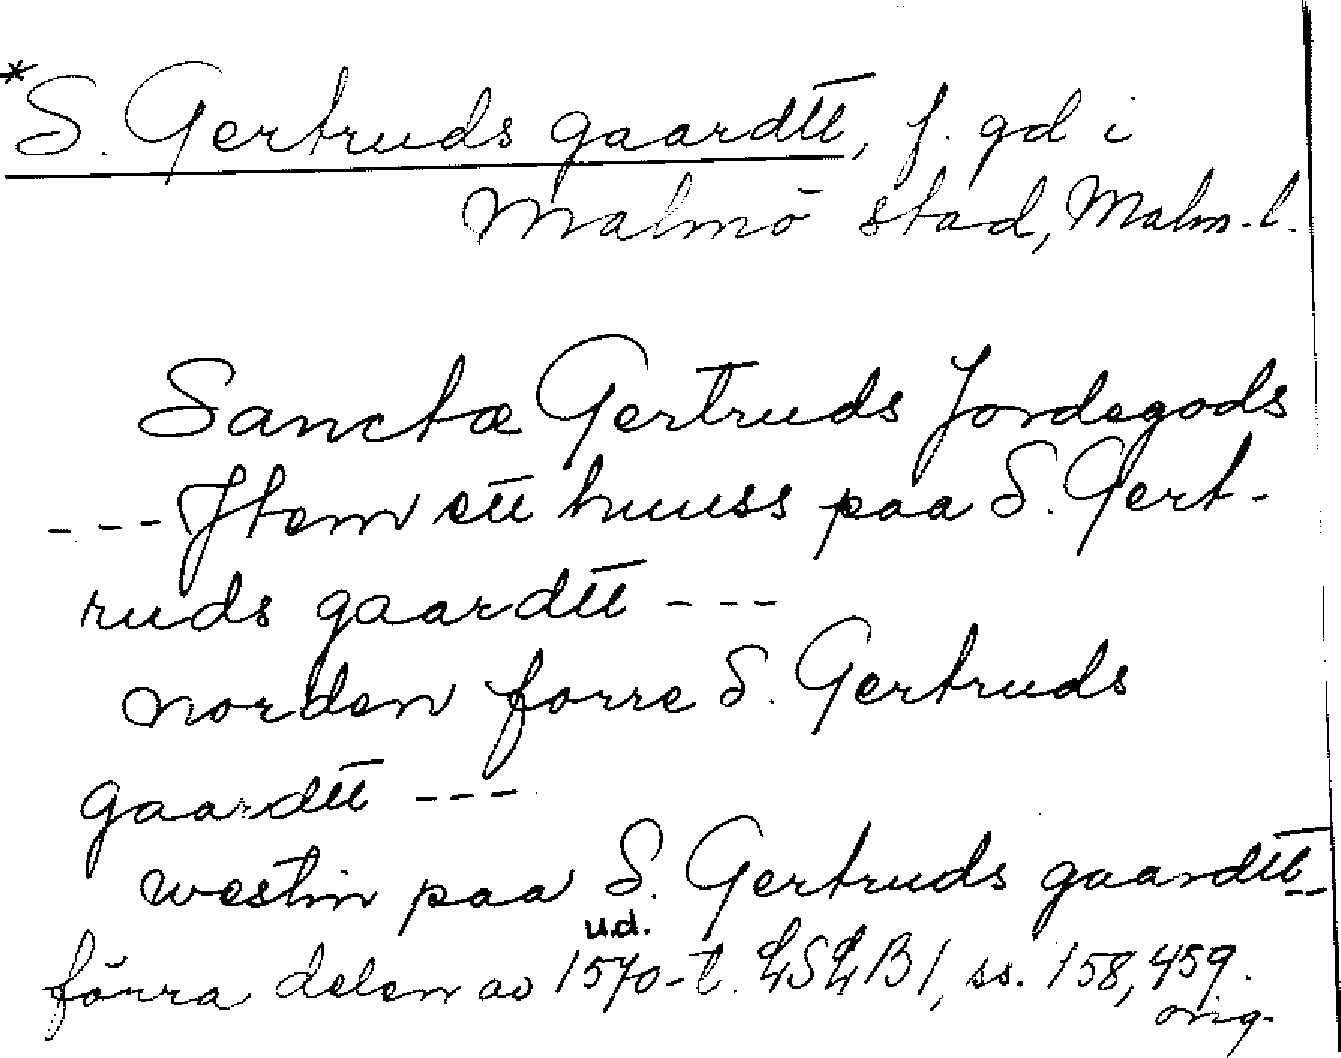 *S. Gertruds gaardtt, f. gd i
Malmö stad, Malm. l.
Sanctæ Gertruds Jordegods
--- Jtem ett huuss paa S. Gert-
ruds gaardtt ---
norden forre S. Gertruds
gaardtt ---
westin paa S. Gertruds gaardtt--
u.d.
förra delen av 1570-t. LSLB 1, ss. 158, 459.
orig.